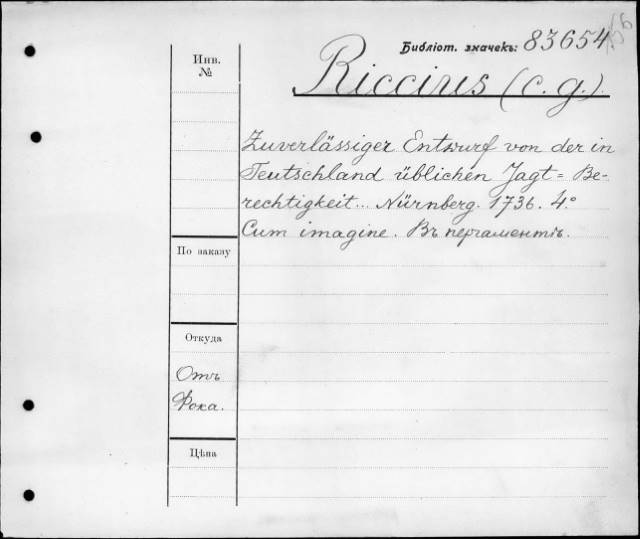 Библіот. значекъ: 83654
Riccius (C. G.)
Инв.
№
Zuverlässiger Entwurf von der in
Teutschland üblichen Jagt= Be-
rechtigkeit... Nürnberg. 1736. 4.°
Cum imagine. Въ пергаментѣ.
По заказу
Откуда
Отъ
Фока.
Цѣна